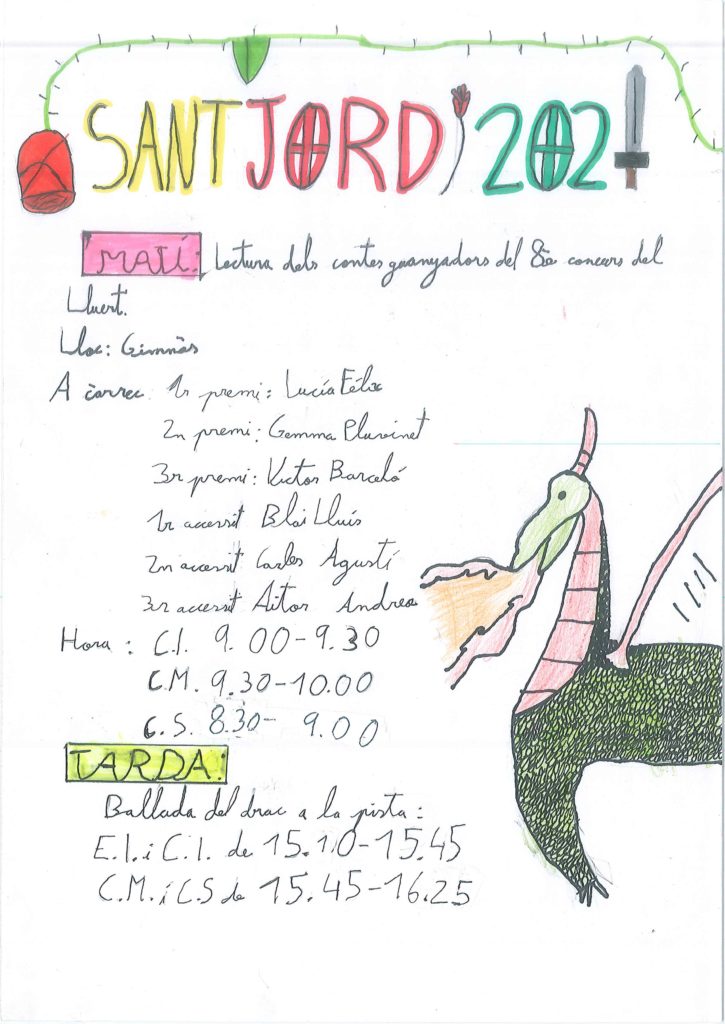 SANT JORDI 2021
MATÍ: Lectura dels contes guanyadors del 8è concurs del
Lluert.
Lloc: Gimnàs
A càrrec: 1r premi: Lucía Félix
2n premi: Gemma Pluvinet
3r premi: Víctor Barceló
1r accessit Blai Lluís
2n accessit Carles Agustí
3r accessit Aitor Andrea
Hora: C.I. 9.00-9.30
C.M. 9.30-10.00
C.S. 8.30- 9.00
TARDA:
Ballada del drac a la pista:
E.I. i C.I. de 15.10-15.45
C.M. i C.S de 15.45-16.25